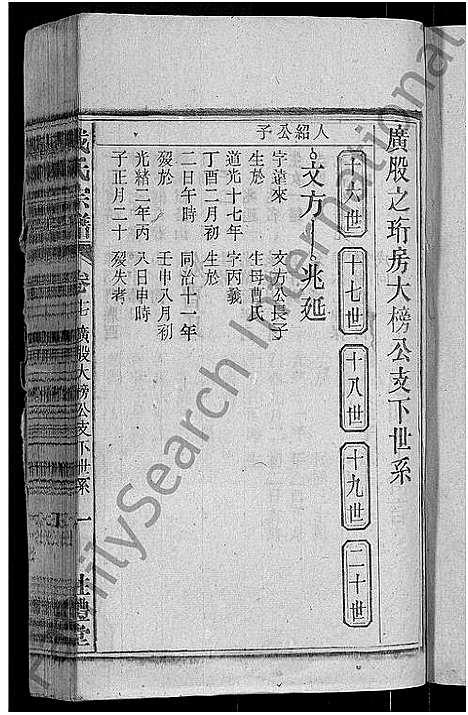 廣股之珩房大榜公支下世系
十六世
十七世
十八世
十九世
二十世
人紹公子
文方
字遠來
生於
道光十七年
丁酉二月初
二日午時
殁於
光緒二年丙
子正月二十
兆延
文方公長子
生母曹氏
字丙義
生於
同治十一年
壬申八月初
八日申時
殁失考
氏宗譜
卷十七
廣股大榜公支下世系
一
禮堂
FamilySearch International